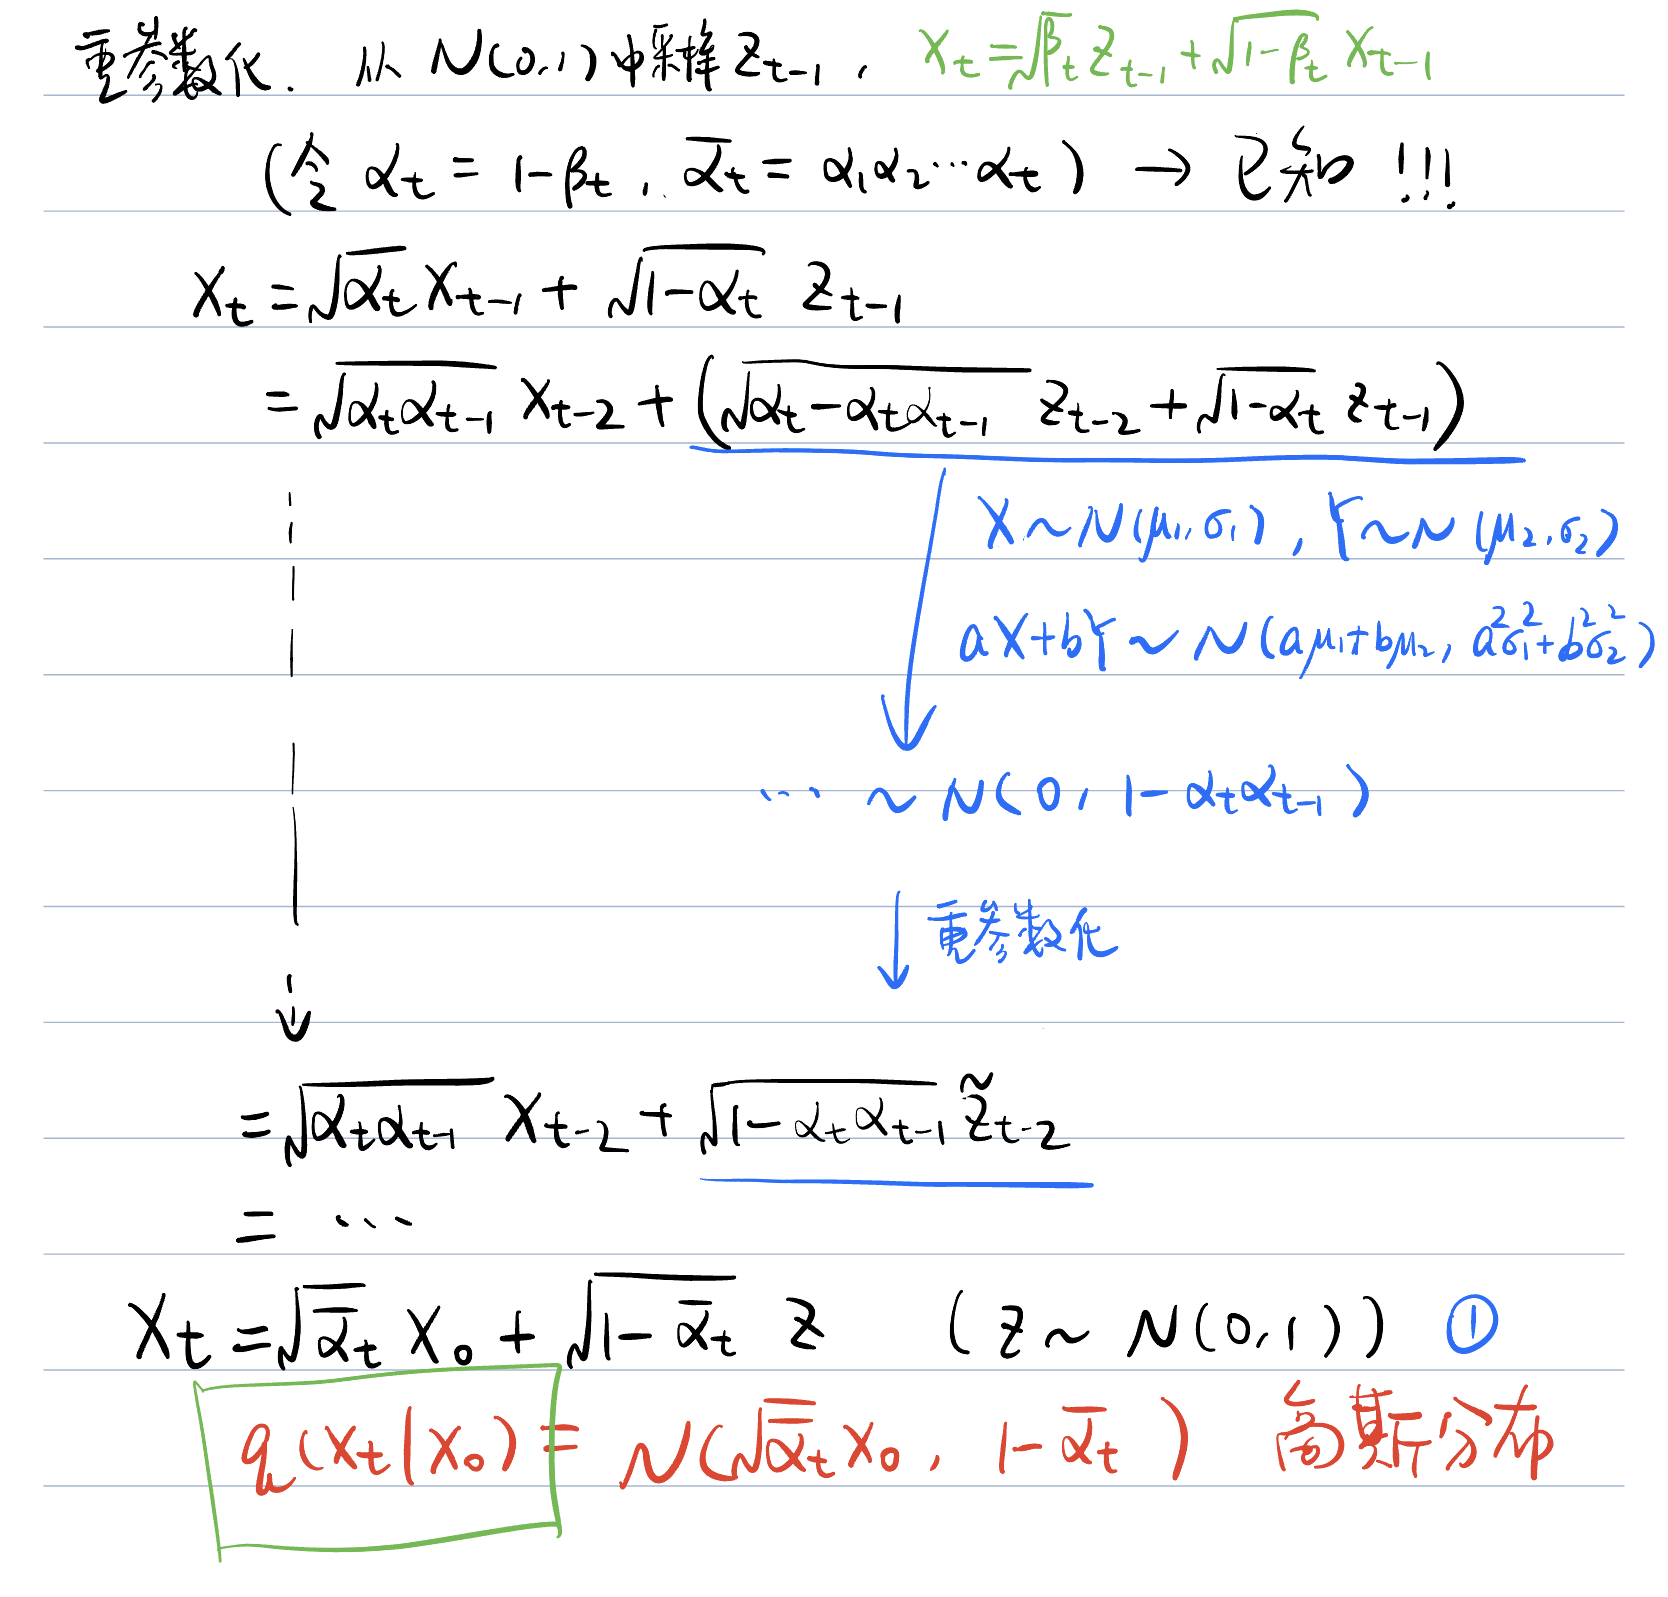 重参数化. 从 N(0,1) 中采样 z_{t-1}, x_t = √β_t z_{t-1} + √(1-β_t) x_{t-1}
(令 α_t = 1-β_t, ᾱ_t = α_1α_2⋯α_t) → 已知 !!!
x_t = √α_t x_{t-1} + √(1-α_t) z_{t-1}
= √(α_tα_{t-1}) x_{t-2} + (√(α_t-α_tα_{t-1}) z_{t-2} + √(1-α_t) z_{t-1})
X~N(μ_1,σ_1), Y~N(μ_2,σ_2)
aX+bY ~ N(aμ_1+bμ_2, a²σ_1²+b²σ_2²)
⋯ ~ N(0, 1-α_tα_{t-1})
↓ 重参数化
= √(α_tα_{t-1}) x_{t-2} + √(1-α_tα_{t-1}) z̃_{t-2}
= ⋯
x_t = √ᾱ_t x_0 + √(1-ᾱ_t) z (z ~ N(0,1)) ①
q(x_t|x_0) = N(√ᾱ_t x_0, 1-ᾱ_t) 高斯分布